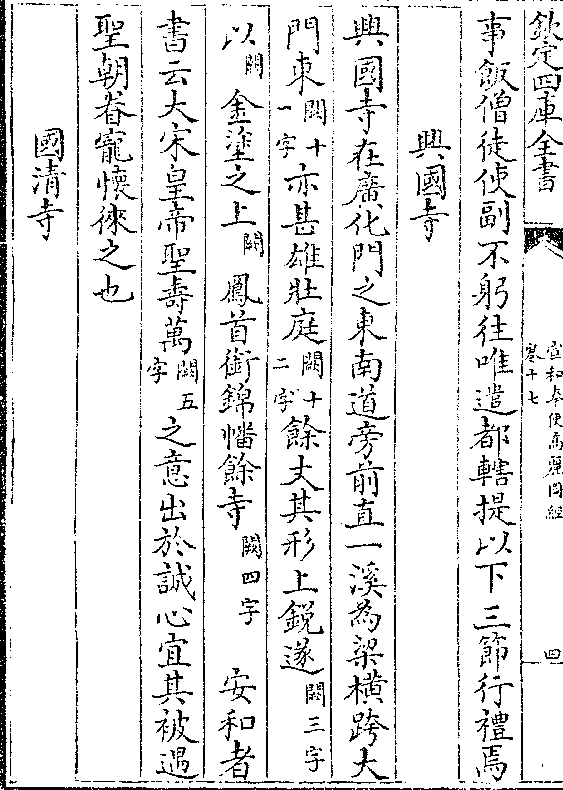 欽定四庫全書
宣和奉使高麗圖經
卷十七
四
事飯僧徒使副不躬往唯遣都轄提以下三節行禮焉
興國寺
興國寺在廣化門之東南道旁前直一溪為梁橫跨大
門東闕十一字亦甚雄壯庭闕十二字餘丈其形上銳遂闕三字
以闕金塗之上闕鳳首銜錦幡餘寺闕四字安和者
書云大宋皇帝聖壽萬闕五字之意出於誠心宜其被遇
聖朝眷寵懷徠之也
國清寺